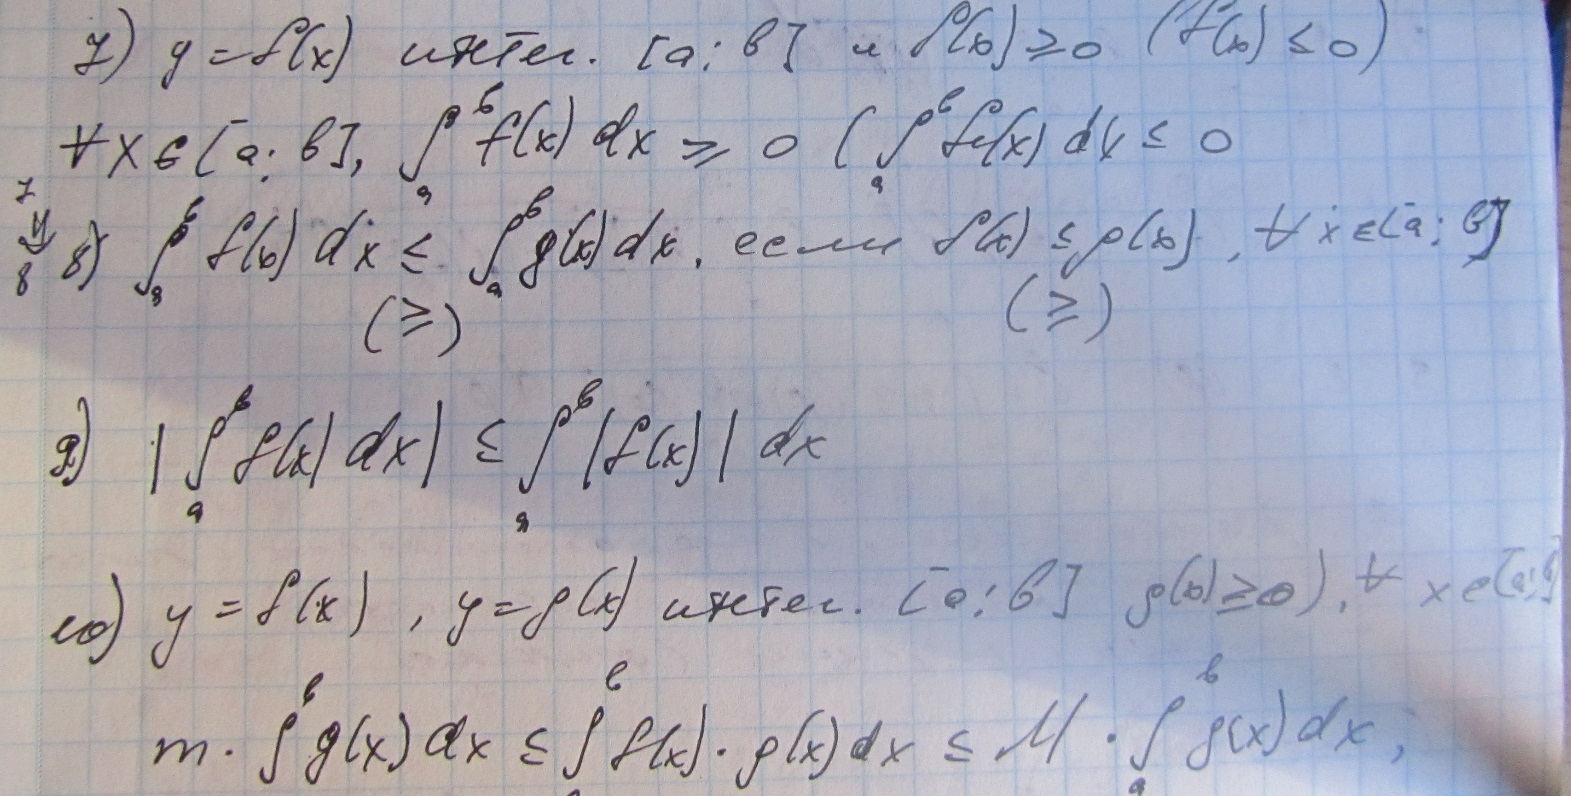 7) y = f(x) интег. [a; b] и f(x) ≥ 0 (f(x) ≤ 0)
∀ x ∈ [a; b], ∫ₐᵇ f(x) dx ≥ 0 (∫ₐᵇ f(x) dx ≤ 0
7
⇓
8
8) ∫ₐᵇ f(x) dx ≤ ∫ₐᵇ g(x) dx, если f(x) ≤ g(x), ∀ x ∈ [a; b]
(≥) (≥)
9) |∫ₐᵇ f(x) dx| ≤ ∫ₐᵇ |f(x)| dx
10) y = f(x), y = g(x) интег. [a; b] g(x) ≥ 0), ∀ x ∈ [a; b]
m · ∫ᵇ g(x) dx ≤ ∫ₐᵇ f(x) · g(x) dx ≤ M · ∫ₐᵇ g(x) dx,